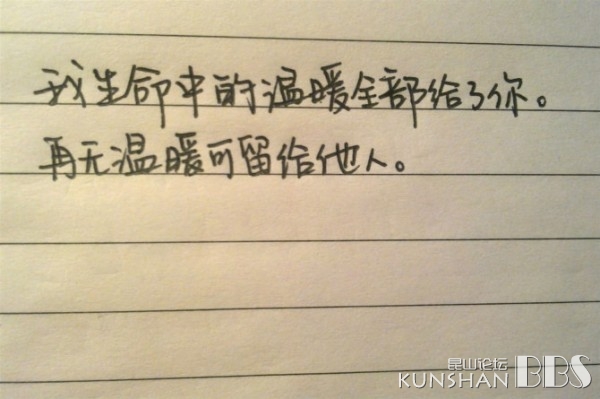 我生命中的温暖全部给了你。
再无温暖可留给他人。
昆山论坛
KUNSHAN BBS